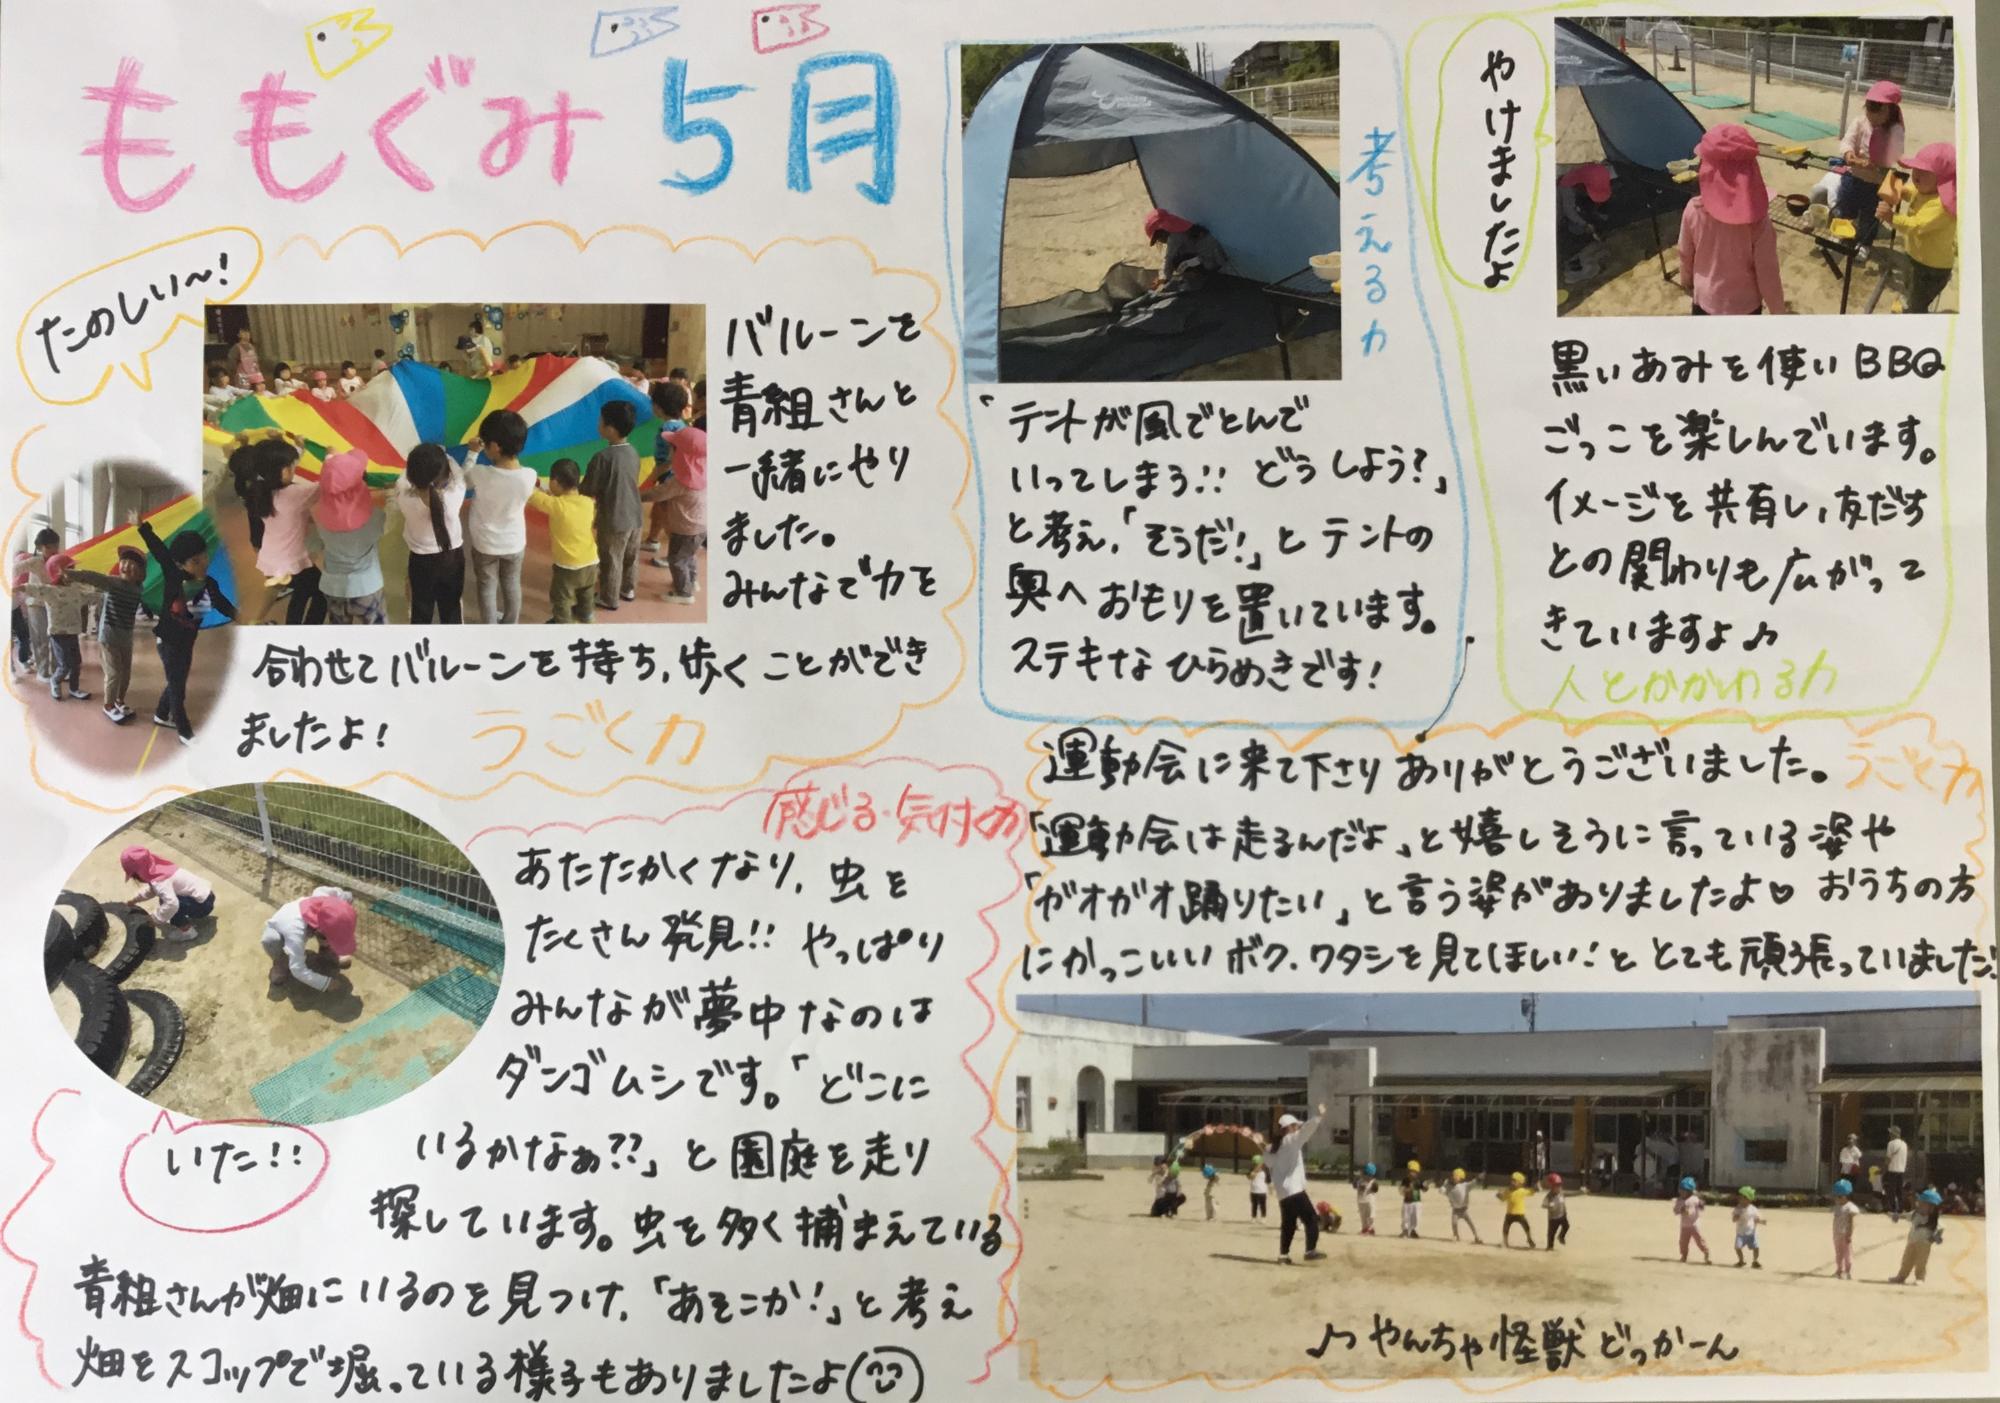 ももぐみ 5月
たのしい〜!
バルーンを
青組さんと
一緒にやり
ました。
みんなで力を
合わせてバルーンを持ち、歩くことができ
ましたよ!
うごく力
考える力
「テントが風でとんで
いってしまう!! どうしよう?」
と考え、「そうだ!」とテントの
奥へおもりを置いています。
ステキなひらめきです!
やけましたよ
黒いあみを使いBBQ
ごっこを楽しんでいます。
イメージを共有し、友だち
との関わりも広がって
きていますよ♪
人とかかわる力
感じる・気付く力
あたたかくなり、虫を
たくさん発見!! やっぱり
みんなが夢中なのは
ダンゴムシです。「どこに
いるかなぁ??」と園庭を走り
探しています。虫を多く捕まえている
青組さんが畑にいるのを見つけ、「あそこか!」と考え
畑をスコップで堀っている様子もありましたよ
いた!!
運動会に来て下さりありがとうございました。
うごく力
「運動会は走るんだよ」と嬉しそうに言っている姿や
「ガオガオ踊りたい」と言う姿がありましたよ♡ おうちの方
にかっこいいボク、ワタシを見てほしい!ととても頑張っていました!
♪やんちゃ怪獣どっかーん